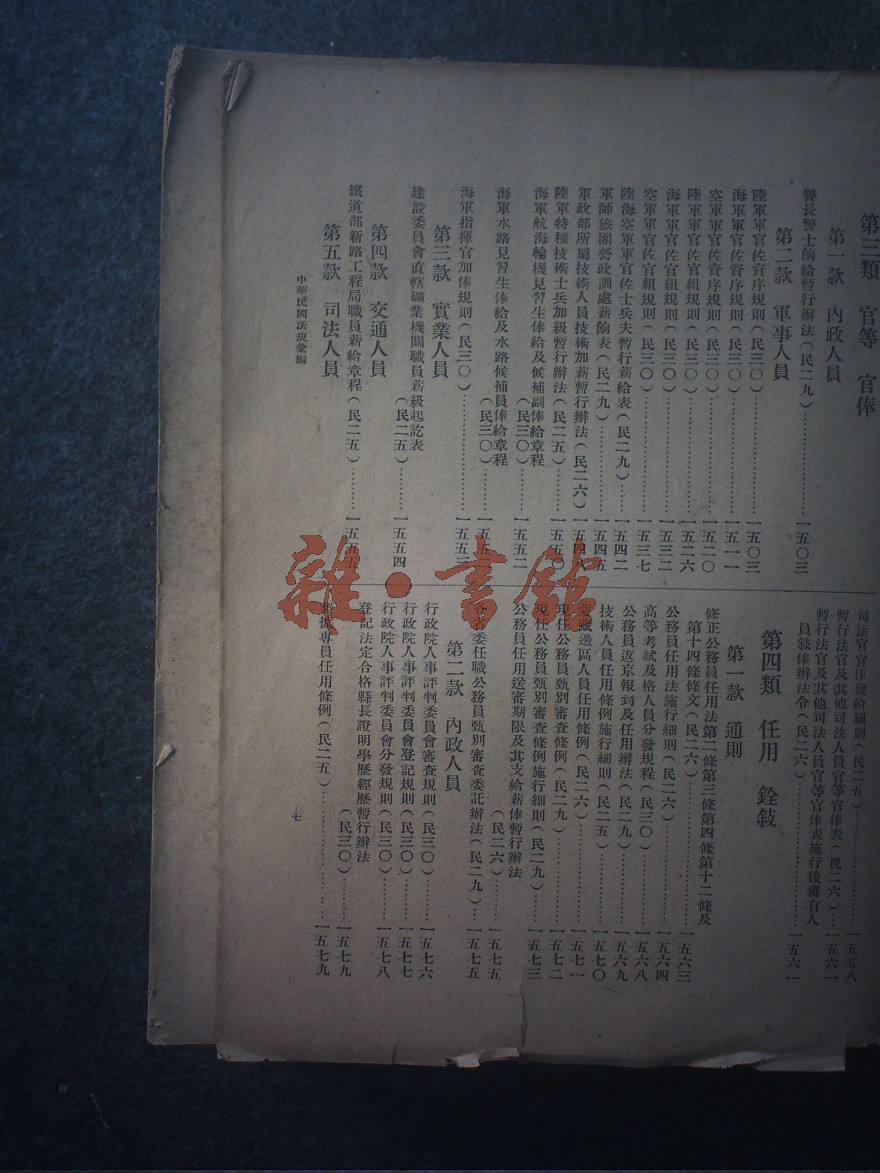 第三類 官等 官俸
第一款 內政人員
警長警士餉給暫行辦法(民二九)……一五〇三
第二款 軍事人員
陸軍軍官佐資序規則(民三〇)……一五〇三
海軍軍官佐資序規則(民三〇)……一五一一
空軍軍官佐資序規則(民三〇)……一五二〇
陸軍軍官佐官組規則(民三〇)……一五二六
海軍軍官佐官組規則(民三〇)……一五三二
空軍軍官佐官組規則(民三〇)……一五三七
陸海空軍軍官佐士兵夫暫行薪給表(民二九)……一五四二
軍師旅團營政訓處薪餉表(民二九)……一五四五
軍政部所屬技術人員技術加薪暫行辦法(民二六)……一五四
陸軍特種技術士兵加級暫行辦法(民二五)……一五五〇
海軍航海輪機見習生俸給及候補副俸給章程
(民三〇)……一五五二
海軍水路見習生俸給及水路候補員俸給章程
(民三〇)……一五五
海軍指揮官加俸規則(民三〇)……一五五三
第三款 實業人員
建設委員會直轄礦業機關職員薪級起訖表
(民二五)……一五五四
第四款 交通人員
鐵道部新路工程局職員薪給章程(民二五)……一五五五
第五款 司法人員
司法官官俸發給細則(民二五)……一五五八
暫行法官及其他司法人員官等官俸表(民二六)……一五六一
暫行法官及其他司法人員官等官俸表施行後薦有人
員敍俸辦法令(民二六)……一五六一
第四類 任用 銓敍
第一款 通則
修正公務員任用法第二條第三條第四條第十二條及
第十四條條文(民二六)……一五六三
公務員任用法施行細則(民二六)……一五六四
高等考試及格人員分發規程(民三〇)……一五六八
公務員返京報到及任用辦法(民二九)……一五六九
技術人員任用條例施行細則(民二五)……一五七〇
藏邊區人員任用條例(民二六)……一五七一
現任公務員甄別審查條例(民二九)……一五七二
現任公務員甄別審查條例施行細則(民二九)……一五七三
公務員任用送審期限及其支給薪俸暫行辦法
(民二六)……一五七五
各省委任職公務員甄別審查委託辦法(民二九)……一五七五
第二款 內政人員
行政院人事評判委員會審查規則(民三〇)……一五七六
行政院人事評判委員會登記規則(民三〇)……一五七七
行政院人事評判委員會分發規則(民三〇)……一五七八
登記法定合格縣長證明學歷經歷暫行辦法
(民三〇)……一五七九
專員任用條例(民二五)……一五七九
中華民國法規彙編
七
雜·書館